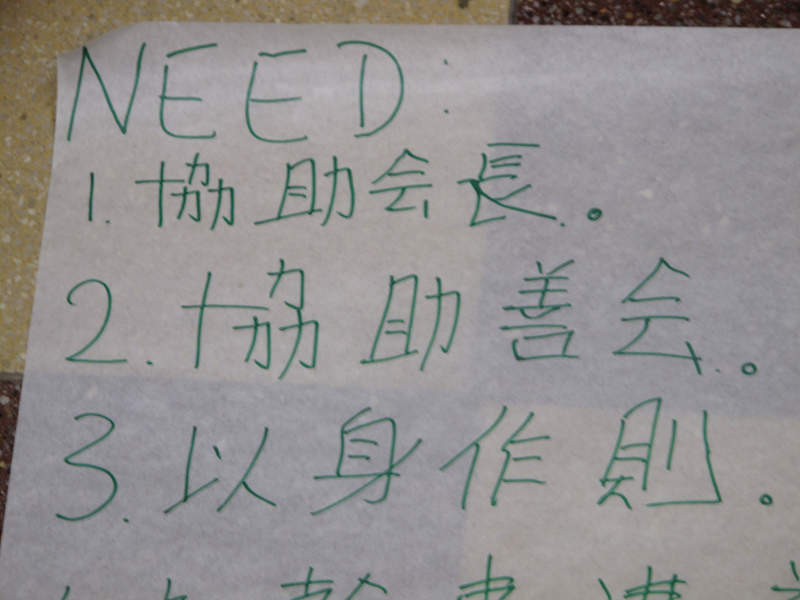 NEED:
1. 協助会長。
2. 協助善会。
3. 以身作則。